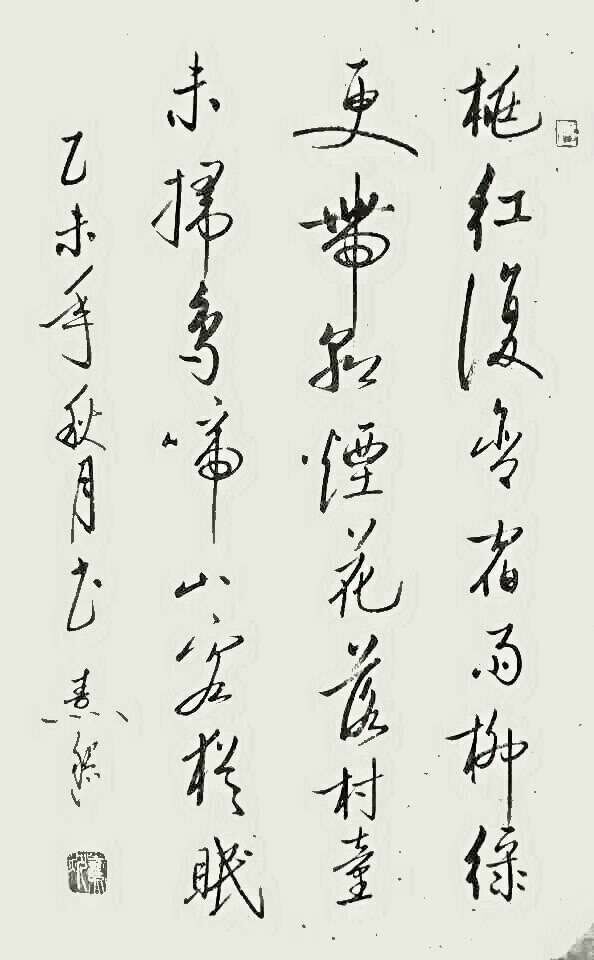 桃紅復含宿雨柳緑
更帶朝煙花落村童
未掃鳥啼山客猶眠
乙未年秋月書